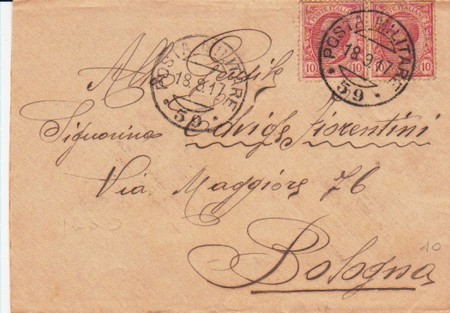 POSTE ITALIANE POSTE ITALIANE
10 10
POSTA MILITARE
18.9.17
59
POSTA MILITARE
18.9.17
59
Alla
Signorina Fiorentini
Via Maggiore 76
Bologna
10